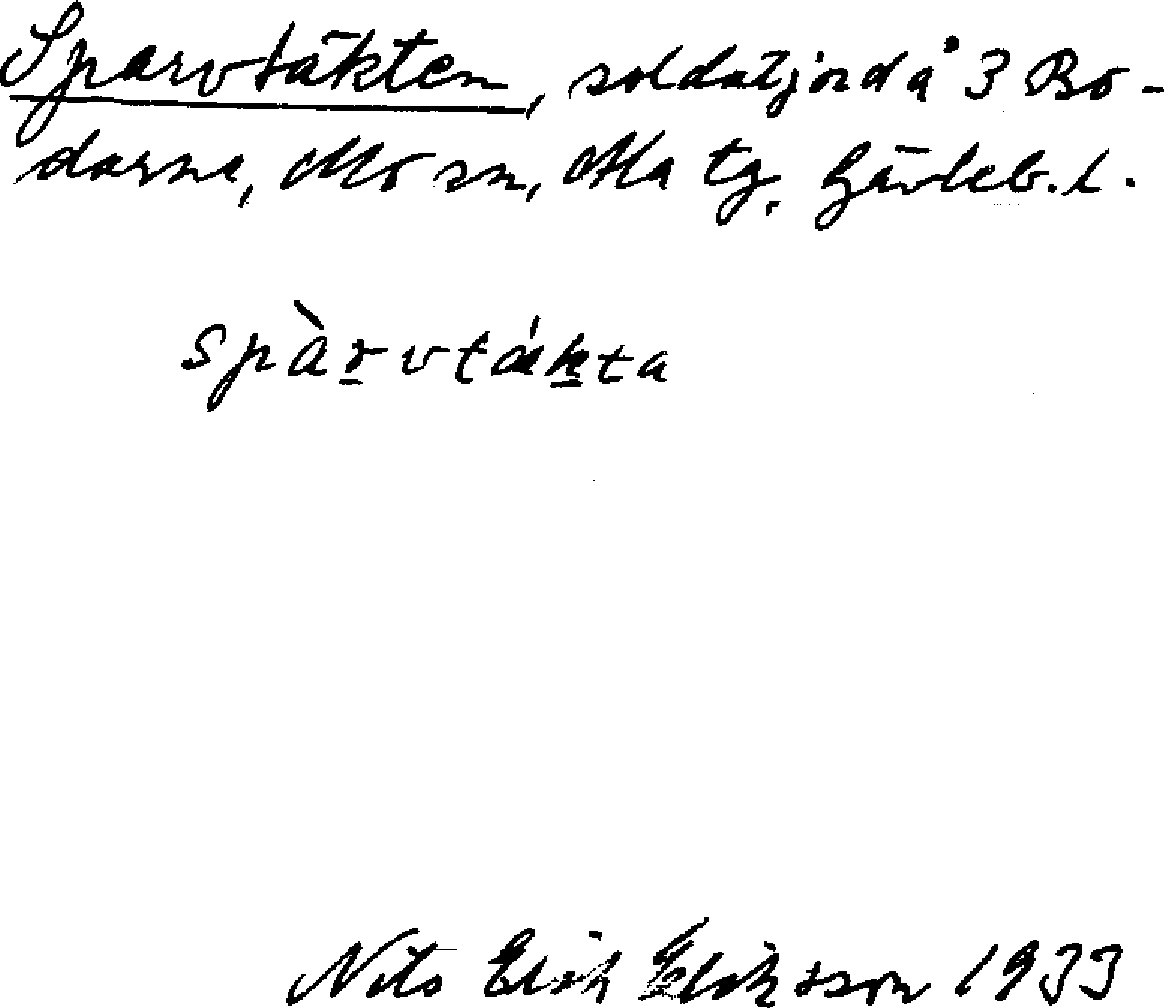 Sparvtäkten, soldatjord å 3 Bo-
darne, Mo sn, Ala tg. Gävleb. l.
spàrvtákta
Nils Erik Eriksson 1933